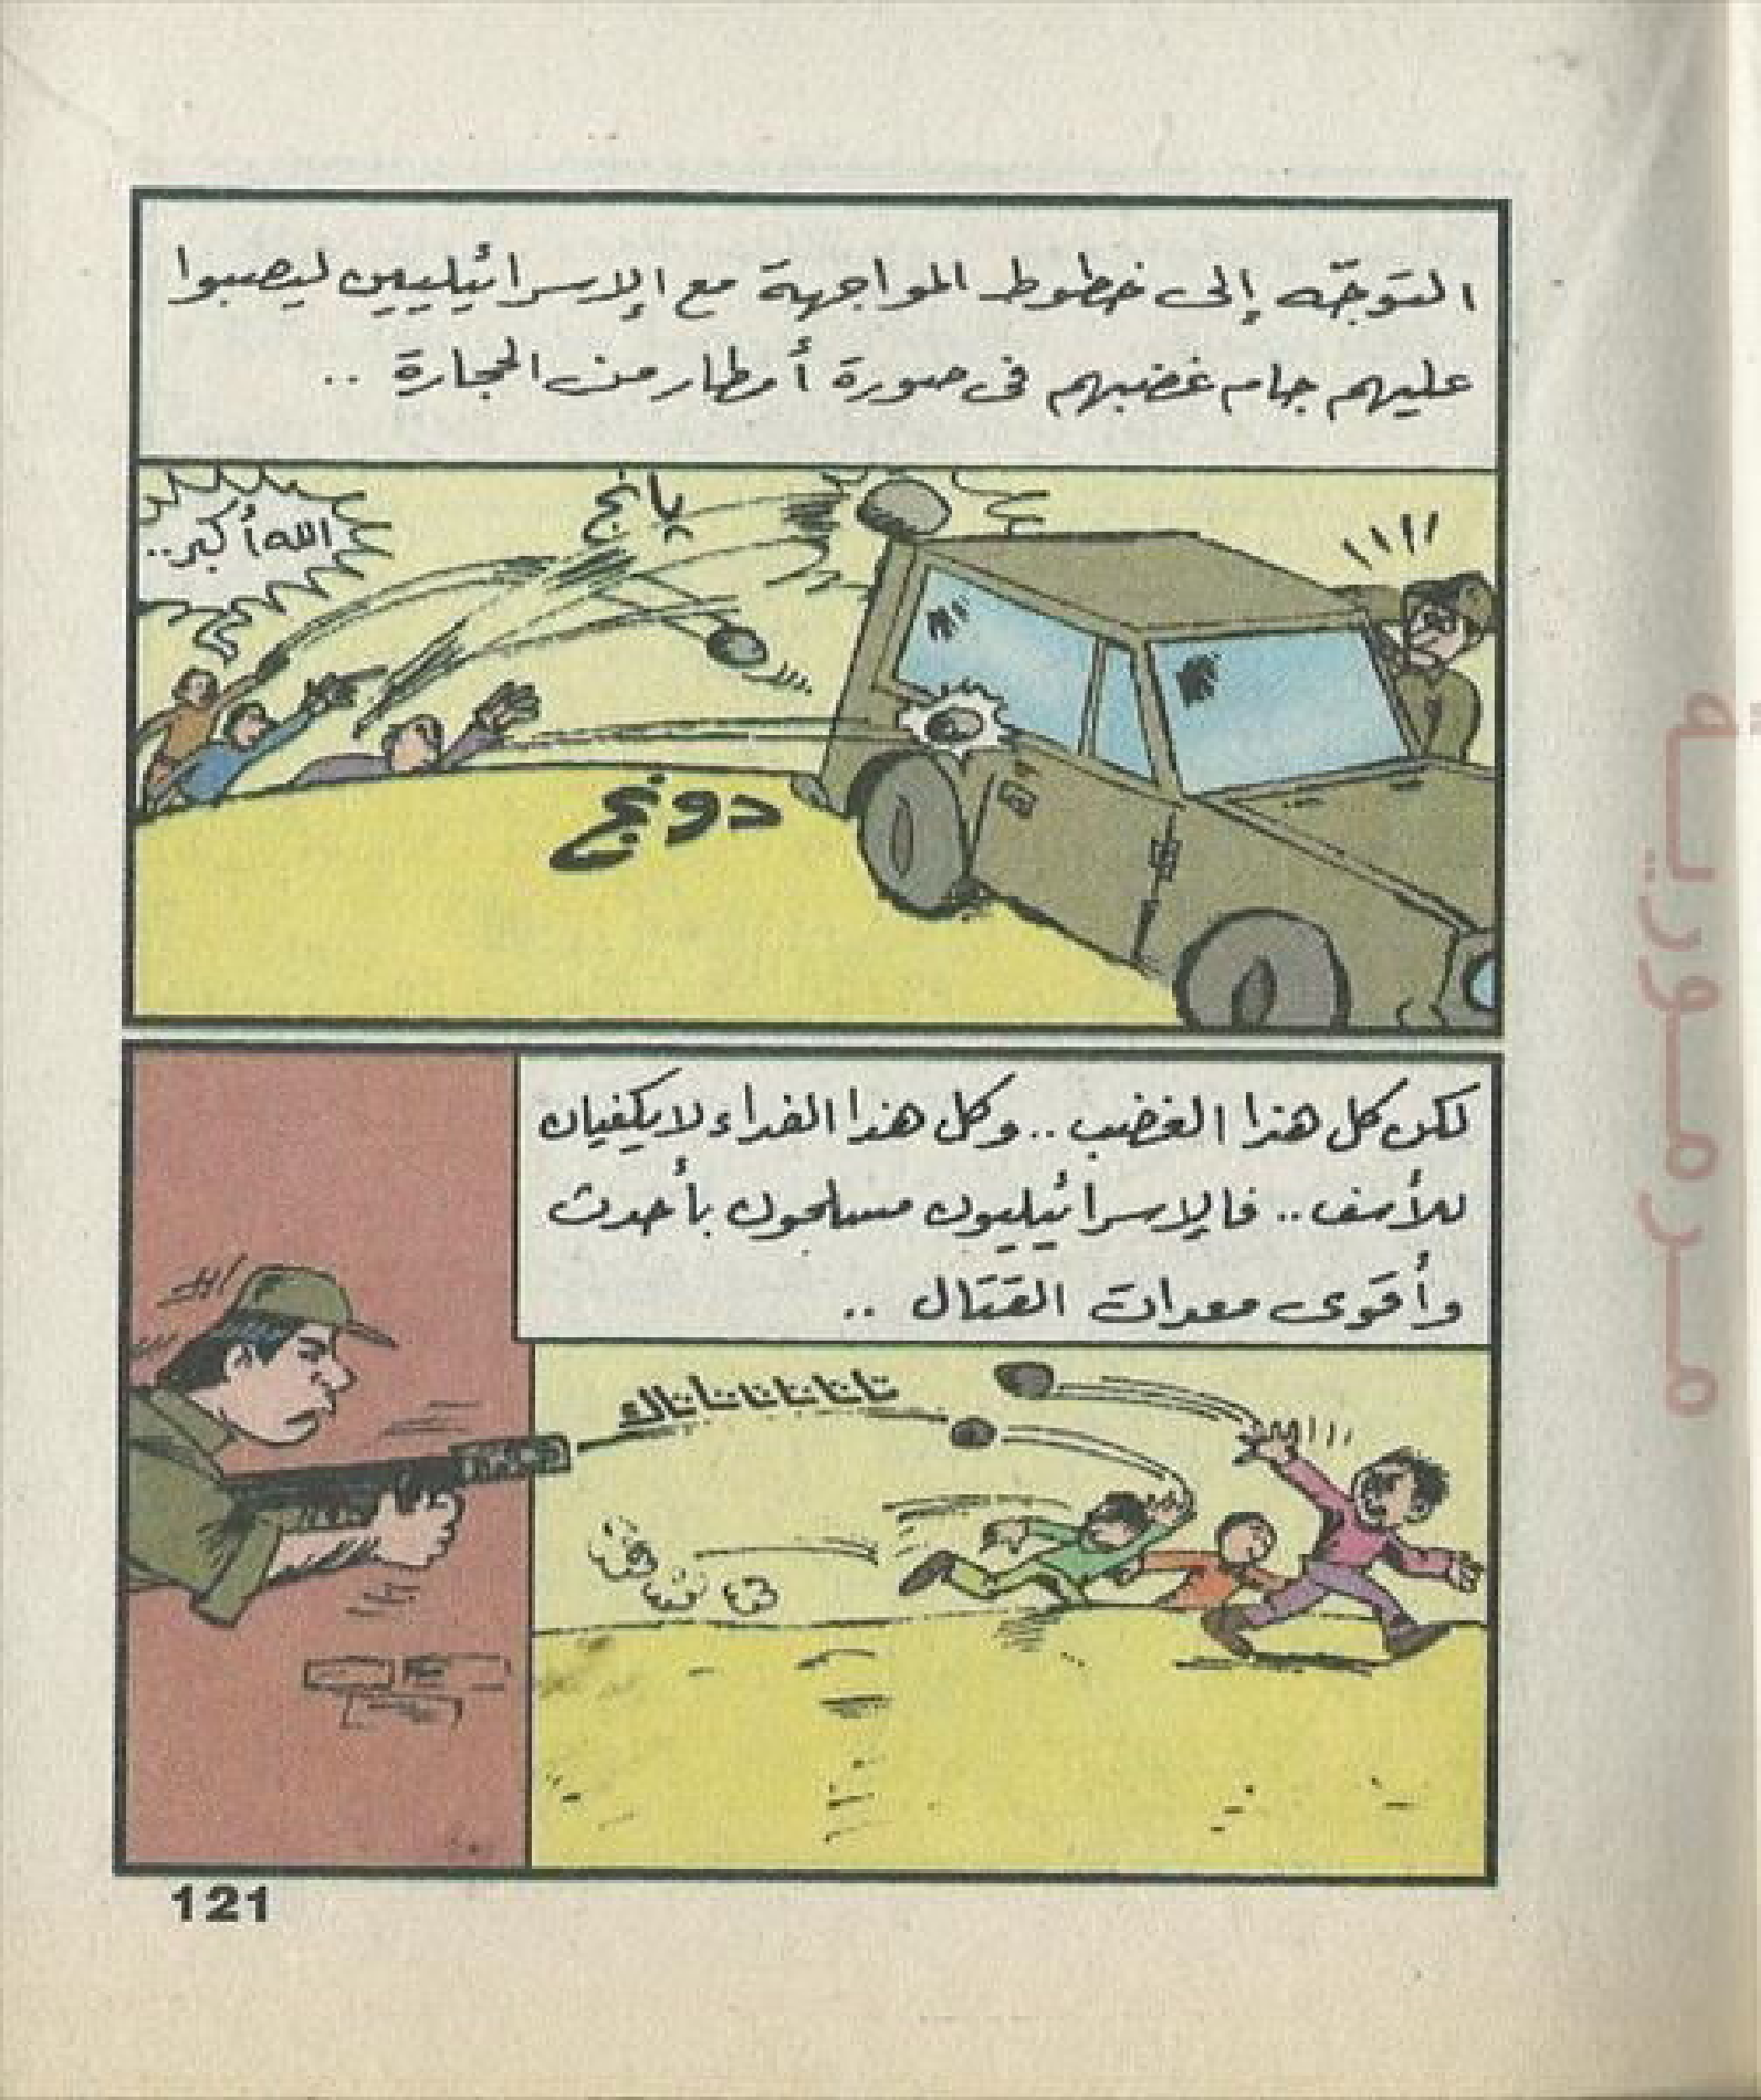 التوجّه إلى خطوط المواجهة مع الإسرائيليين ليصبوا
عليهم جام غضبهم فى صورة أمطار من الحجارة ..
الله أكبر..
پانج
دونج
لكن كل هذا الغضب .. وكل هذا الفداء لا يكفيان
للأسف .. فالإسرائيليون مسلحون بأحدث
وأقوى معدات القتال ..
تاتاتاتاتاتاك
121
مدرمورية